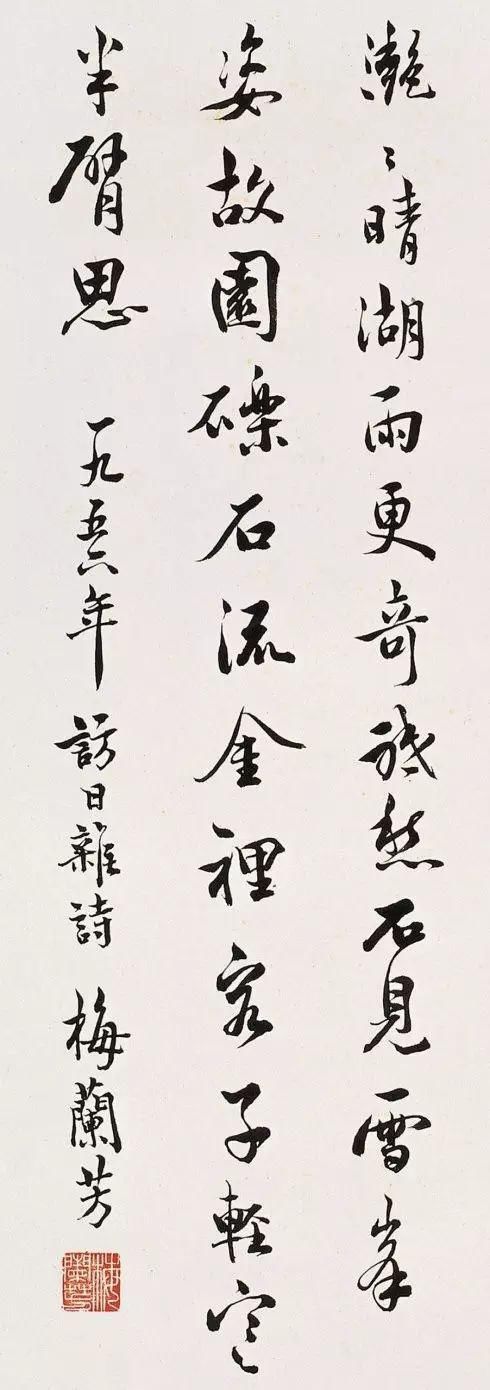 灔〻晴湖雨更奇祗愁不見雪峯
姿故園礫石流金裡客子輕寒
半臂思 一九五六年 訪日雜詩 梅蘭芳